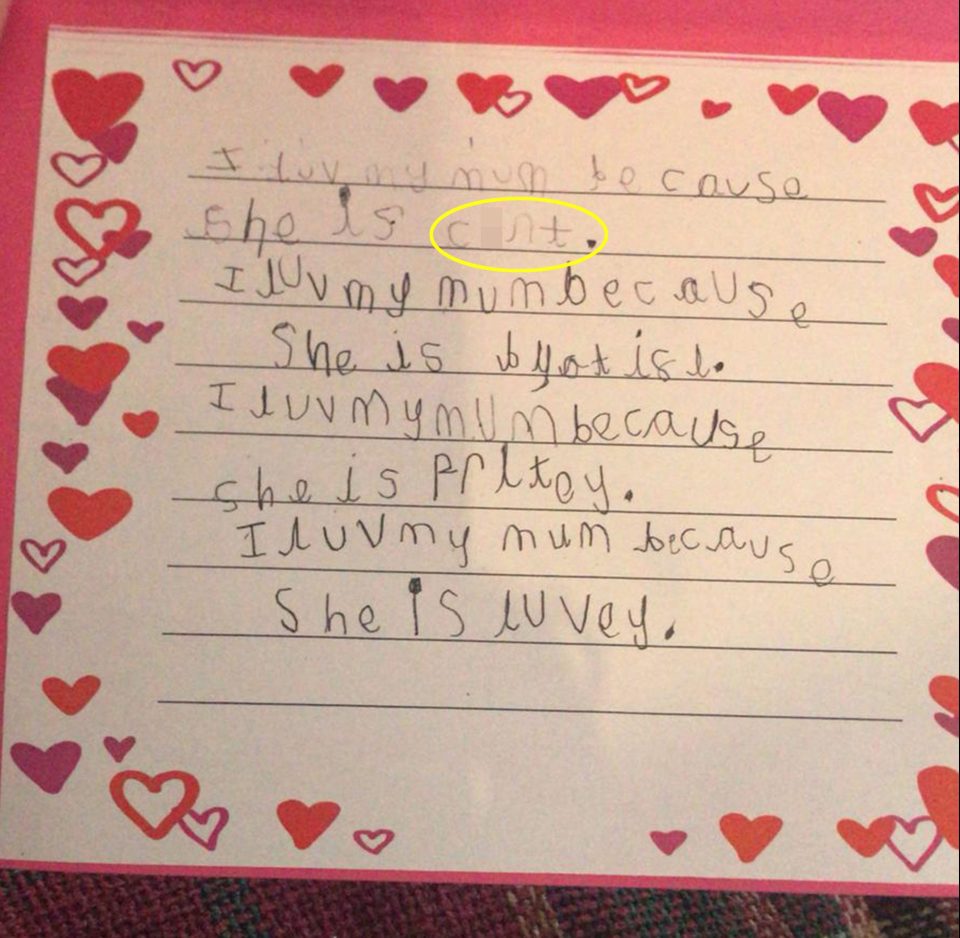 I luv my mum because
she is
I luv my mum because
She is byotisl.
I luv my mum because
she is prltey.
I luv my mum because
She is luvey.